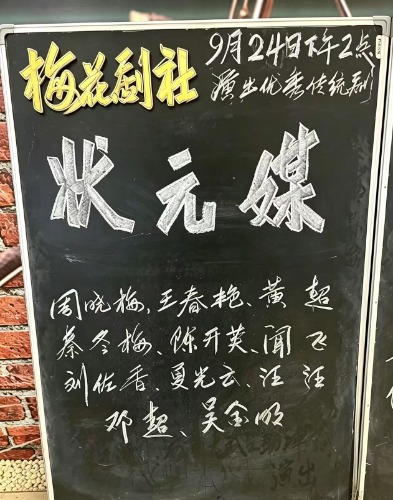 梅花剧社
9月24日下午2点
演出优秀传统剧
状元媒
周晓梅、王春艳、黄 超
蔡冬梅、陈开英、闻 飞
刘佐香、夏光云、汪 汪
邓超、吴金明
演出